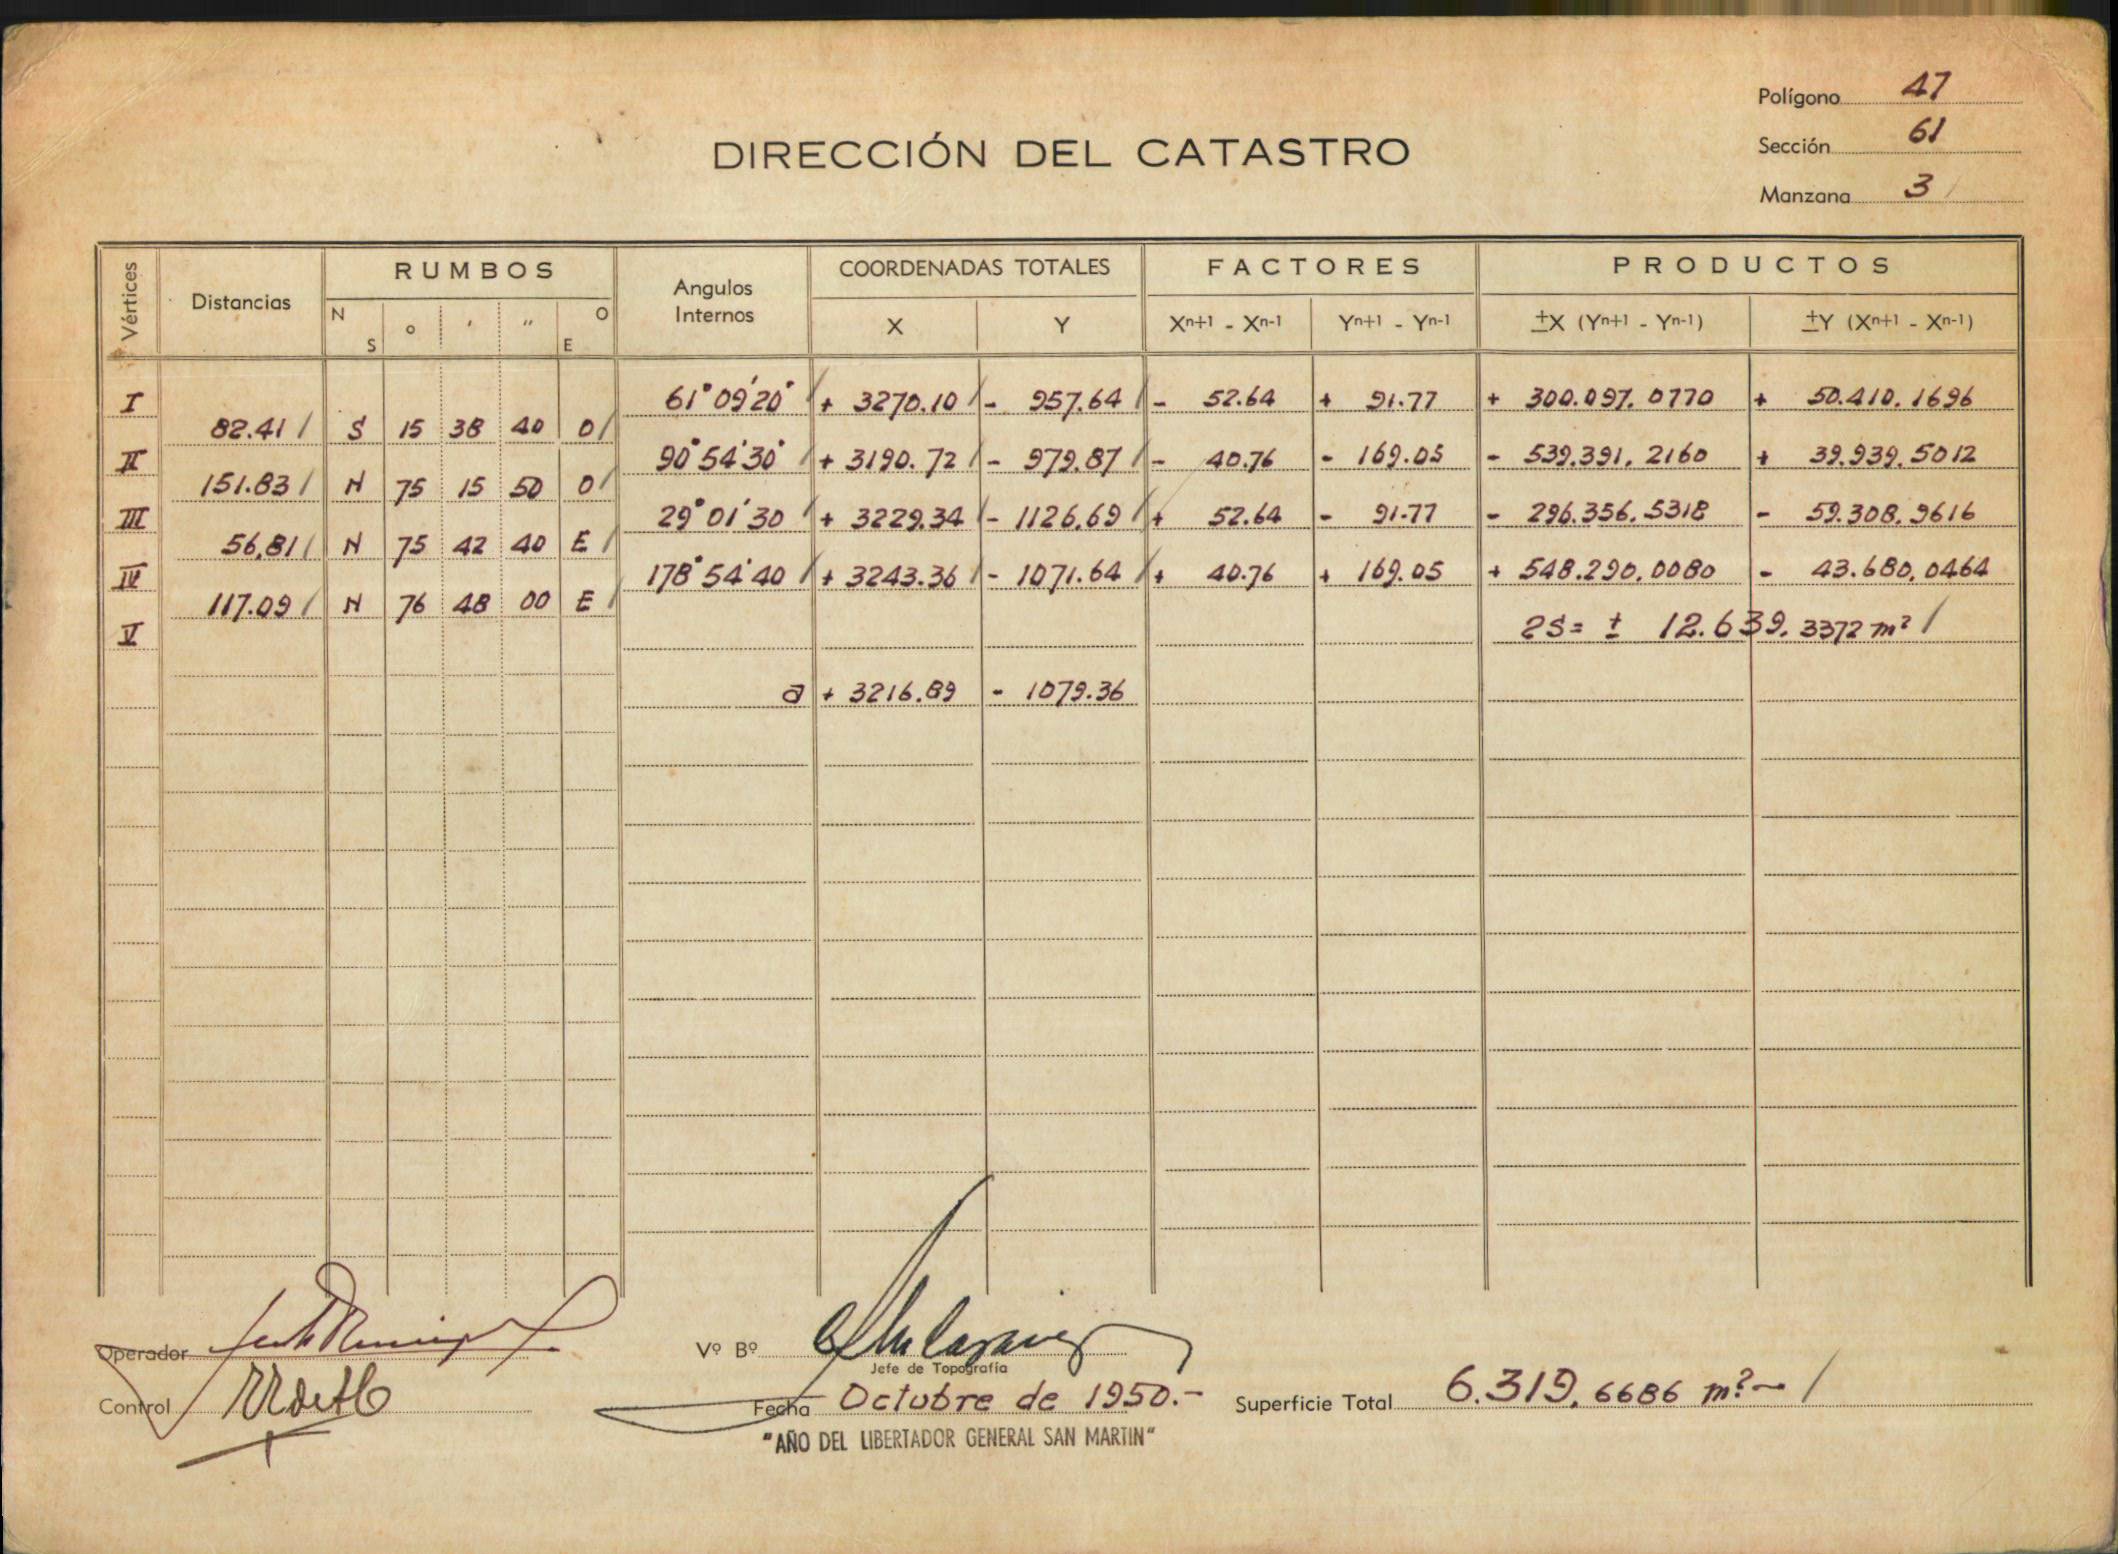 Polígono 47
DIRECCIÓN DEL CATASTRO
Sección 61
Manzana 3
Vértices Distancias RUMBOS Angulos Internos COORDENADAS TOTALES FACTORES PRODUCTOS
N S ° ' " O E X Y Xn+1 - Xn-1 Yn+1 - Yn-1 ±X (Yn+1 - Yn-1) ±Y (Xn+1 - Xn-1)
I 61°09'20" + 3270.10 - 957.64 - 52.64 + 91.77 + 300.097.0770 + 50.410.1696
82.41 S 15 38 40 O
II 90°54'30" + 3190.72 - 979.87 - 40.76 - 169.05 - 539.391.2160 + 39.939.5012
151.83 N 75 15 50 O
III 29°01'30 + 3229.34 - 1126.69 + 52.64 - 91.77 - 296.356.5318 - 59.308.9616
56.81 N 75 42 40 E
IV 178°54'40 + 3243.36 - 1071.64 + 40.76 + 169.05 + 548.290.0080 - 43.680.0464
117.09 N 76 48 00 E
V 2S= ± 12.639.3372 m²
a + 3216.89 - 1079.36
Operador
Vº Bº
Jefe de Topografía
Control
Fecha Octubre de 1950.-
Superficie Total 6.319.6686 m².-
"AÑO DEL LIBERTADOR GENERAL SAN MARTIN"